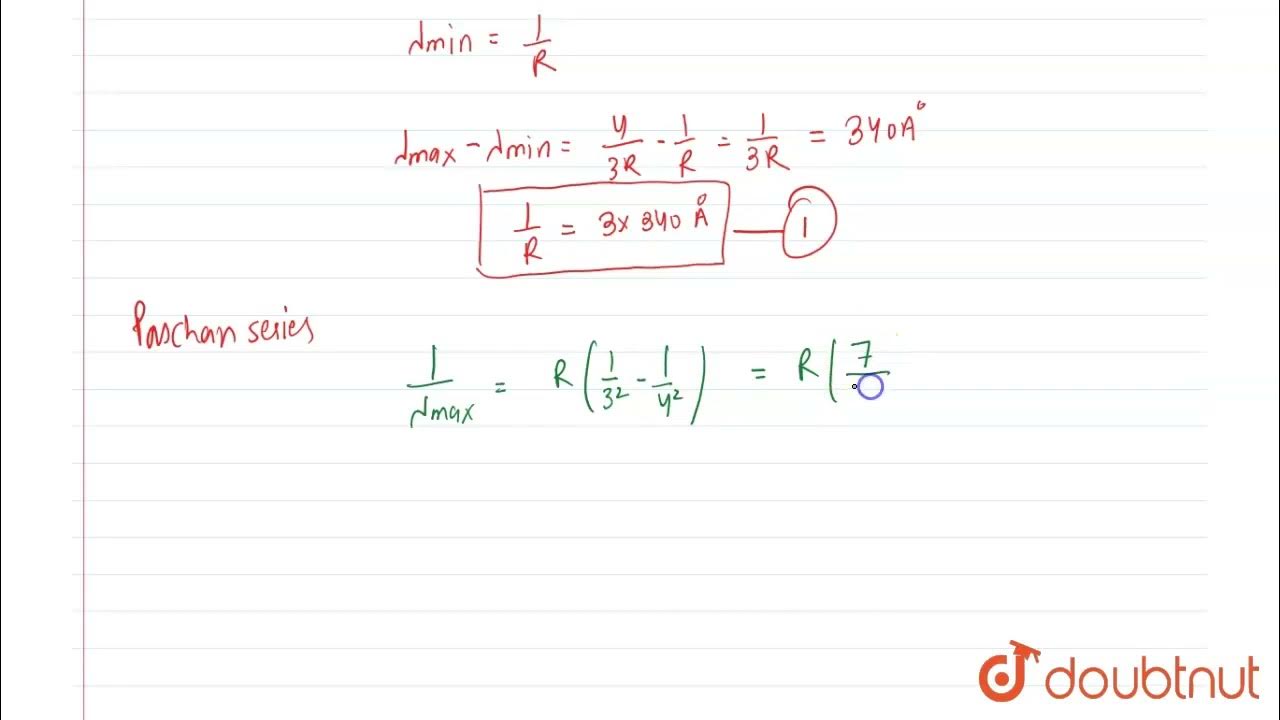 λmin = 1/R
λmax - λmin = 4/3R - 1/R = 1/3R = 340Å
1/R = 3x340 Å — 1
Paschan series
1/λmax = R(1/3² - 1/4²) = R(7/
doubtnut